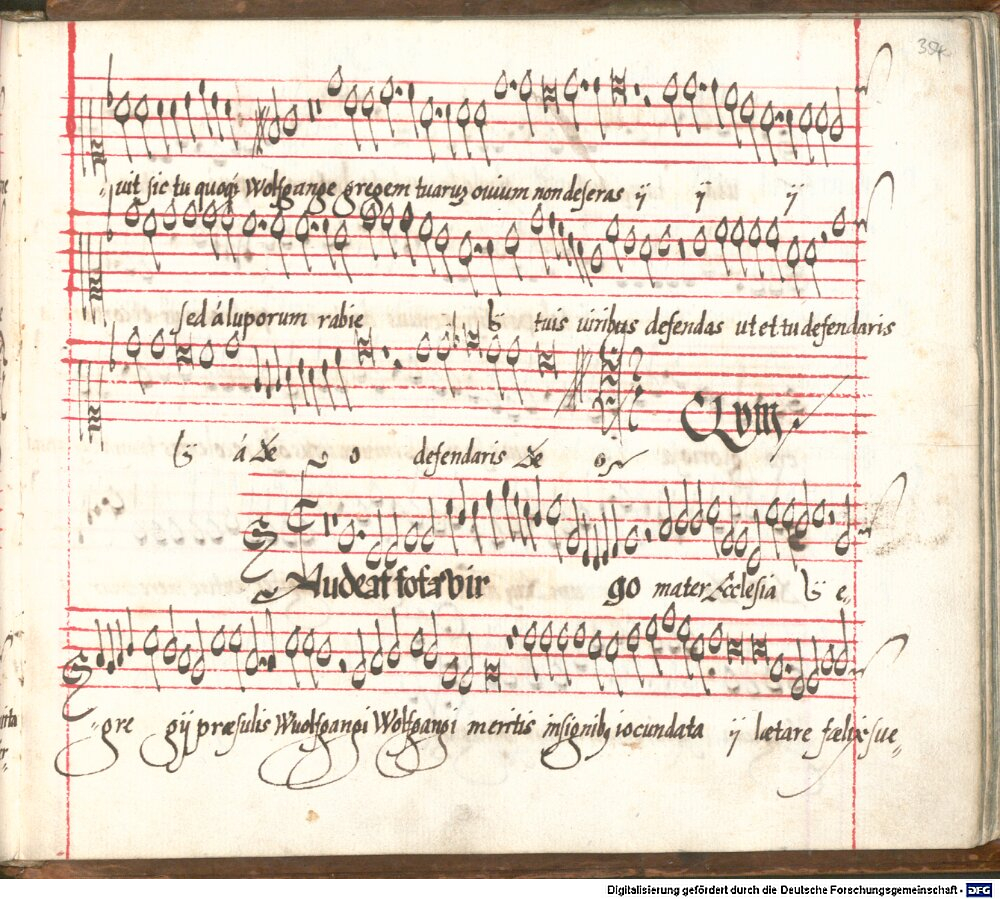 354
uit sic tu quoqȝ Wolfgange gregem tuarū ouium non deseras ij ij ij
sed á luporum rabie ij tuis uiribus defendas ut et tu defendaris
ij á Deo defendaris Deo
Audeat tota vir go mater Ecclesia ij e„
„gre gij præsulis Wuolfgangi Wolfgangi meritis insignibꝫ iocundata ij lætare fælix sue„
Digitalisierung gefördert durch die Deutsche Forschungsgemeinschaft - DFG